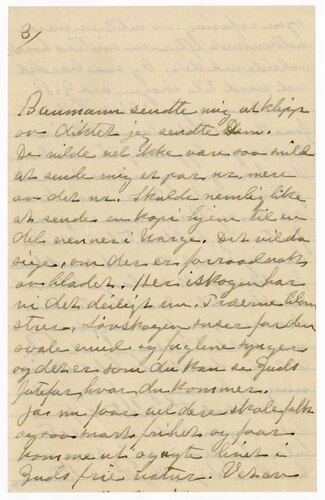 3/
Baumann sendte mig utklipp
av diktet jeg sendte Dem.
De vilde vel ikke være saa snild
at sende mig et par nr. mere
av det nr. Skulde nemlig like
at sende en kopi hjem til en
del venner i Norge. Det vil da
sige, om der er forraad nok
av bladet. Her i skogen har
vi det deiligt nu. Træerne blom
strer, Løvskogen suser for den
svale vind og fuglene synger
og det er som du kan se Guds
fotefar, hvor du kommer.
Jas nu faar vel dere skolefolk
ogsaa snart frihet og faar
komme ut og nyte livet i
Guds frie natur. Vet av